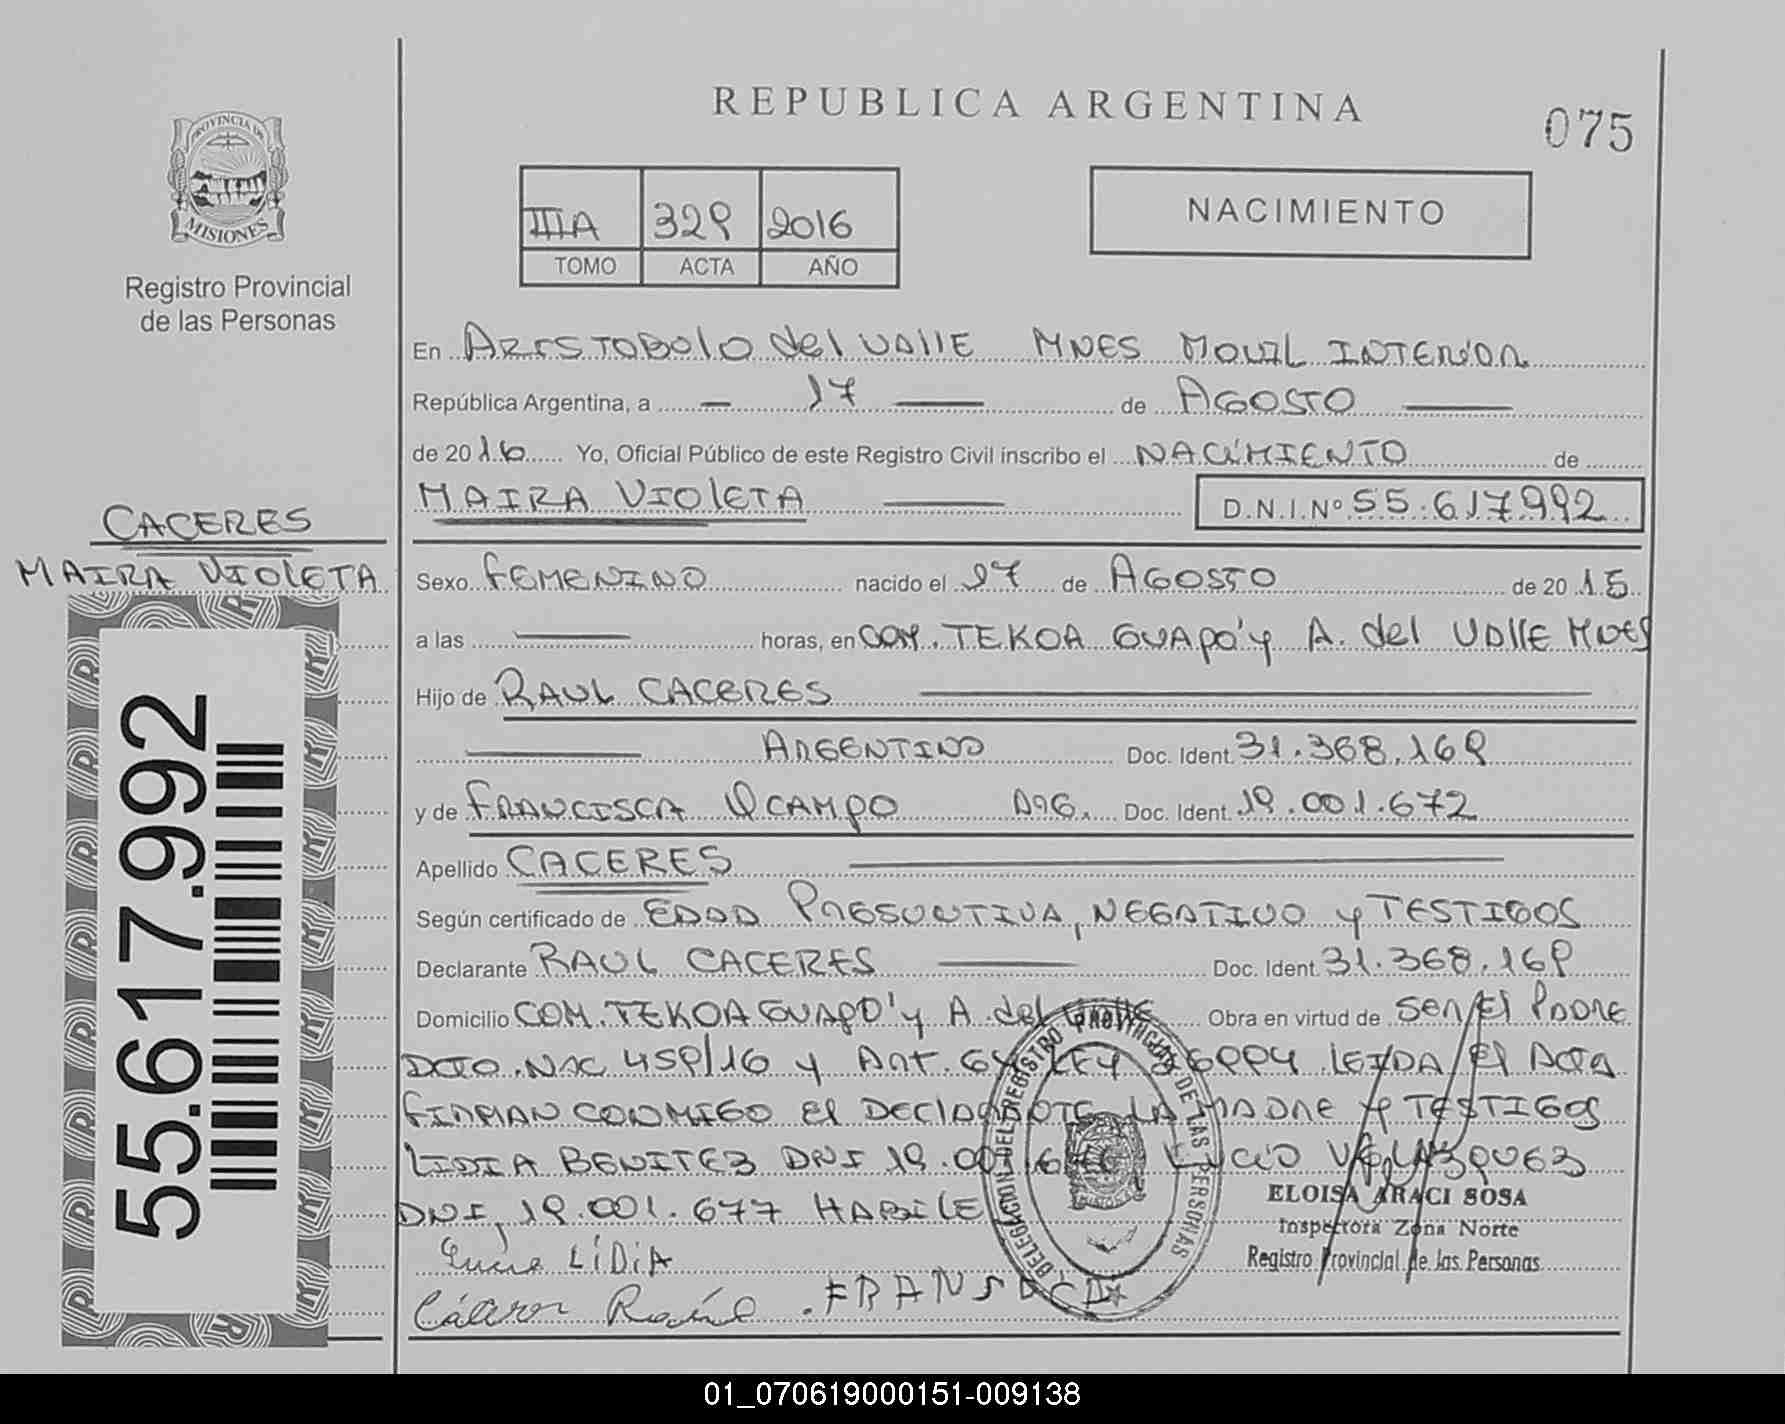 REPUBLICA ARGENTINA
075
PROVINCIA DE
MISIONES
Registro Provincial
de las Personas
IIIA 329 2016
TOMO ACTA AÑO
NACIMIENTO
En ARISTOBOLO del VALLE MNES MOVIL INTERIOR
República Argentina, a 17 de AGOSTO
de 2016 Yo, Oficial Público de este Registro Civil inscribo el NACIMIENTO de
MAIRA VIOLETA D.N.I.Nº 55.617992
CACERES
MAIRA VIOLETA
Sexo FEMENINO nacido el 17 de AGOSTO de 2015
a las horas, en COM. TEKOA GUAPO'y A. del VALLE MNES
Hijo de RAUL CACERES
ARGENTINO Doc. Ident. 31.368.169
y de FRANCISCA OCAMPO ARG. Doc. Ident. 19.001.672
Apellido CACERES
Según certificado de EDAD PRESUNTIVA, NEGATIVO y TESTIGOS
Declarante RAUL CACERES Doc. Ident. 31.368.169
Domicilio COM. TEKOA GUAPO'y A. del VALLE Obra en virtud de SER El PADRE
DCTO. NAC 459/16 y ART. 64 LEY 26994 LEIDA El ACTA
FIRMAN CONMIGO El DECLARANTE LA MADRE y TESTIGOS
LIDIA BENITEZ DNI 19.001.6 LUCIO VELAZQUEZ
DNI, 19.001.677 HABILE
LIDIA
Cáceres Raúl FRANSICA
DELEGACION DEL REGISTRO PROVINCIAL DE LAS PERSONAS
ELOISA ARACI SOSA
Inspectora Zona Norte
Registro Provincial de las Personas
55.617.992
01_070619000151-009138